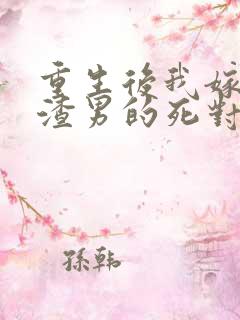 重生後我嫁
渣男的死對
孫韩